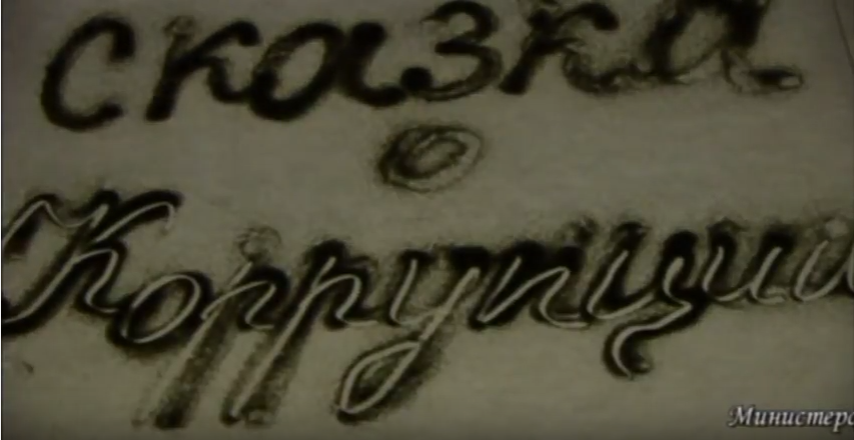 сказка
о
Коррупции
Министерс